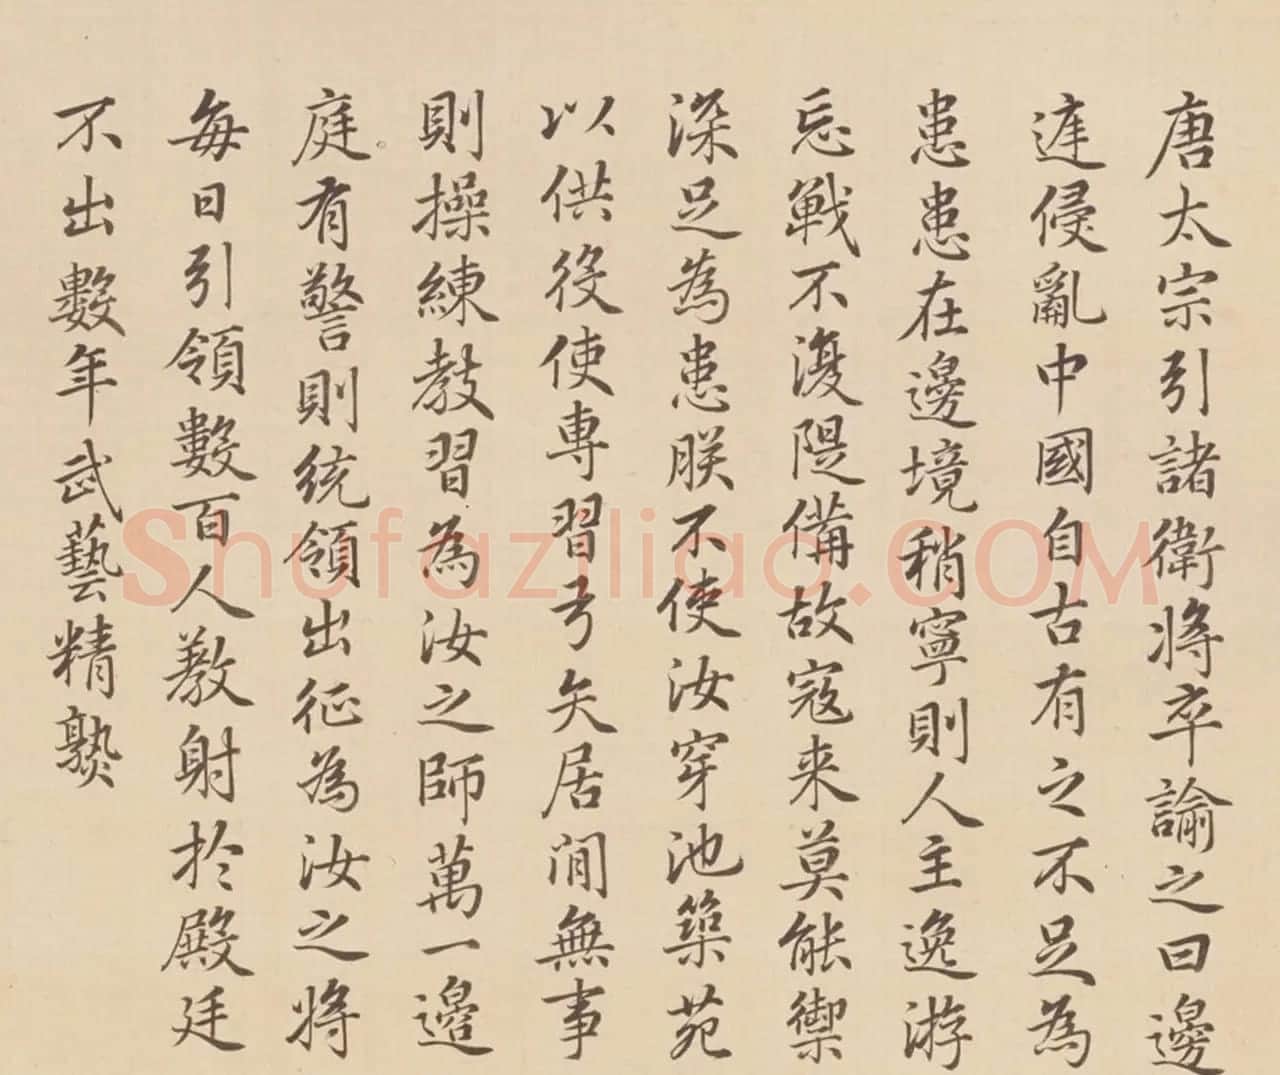 唐太宗引諸衛將卒諭之曰邊
遑侵亂中國自古有之不足為
患患在邊境稍寧則人主逸游
忘戰不復隄備故寇来莫能禦
深足為患朕不使汝穿池築苑
以供役使專習弓矢居閒無事
則操練教習為汝之師萬一邊
庭有警則統領出征為汝之將
每日引領數百人教射於殿廷
不出數年武藝精熟
Shufaziliao.COM